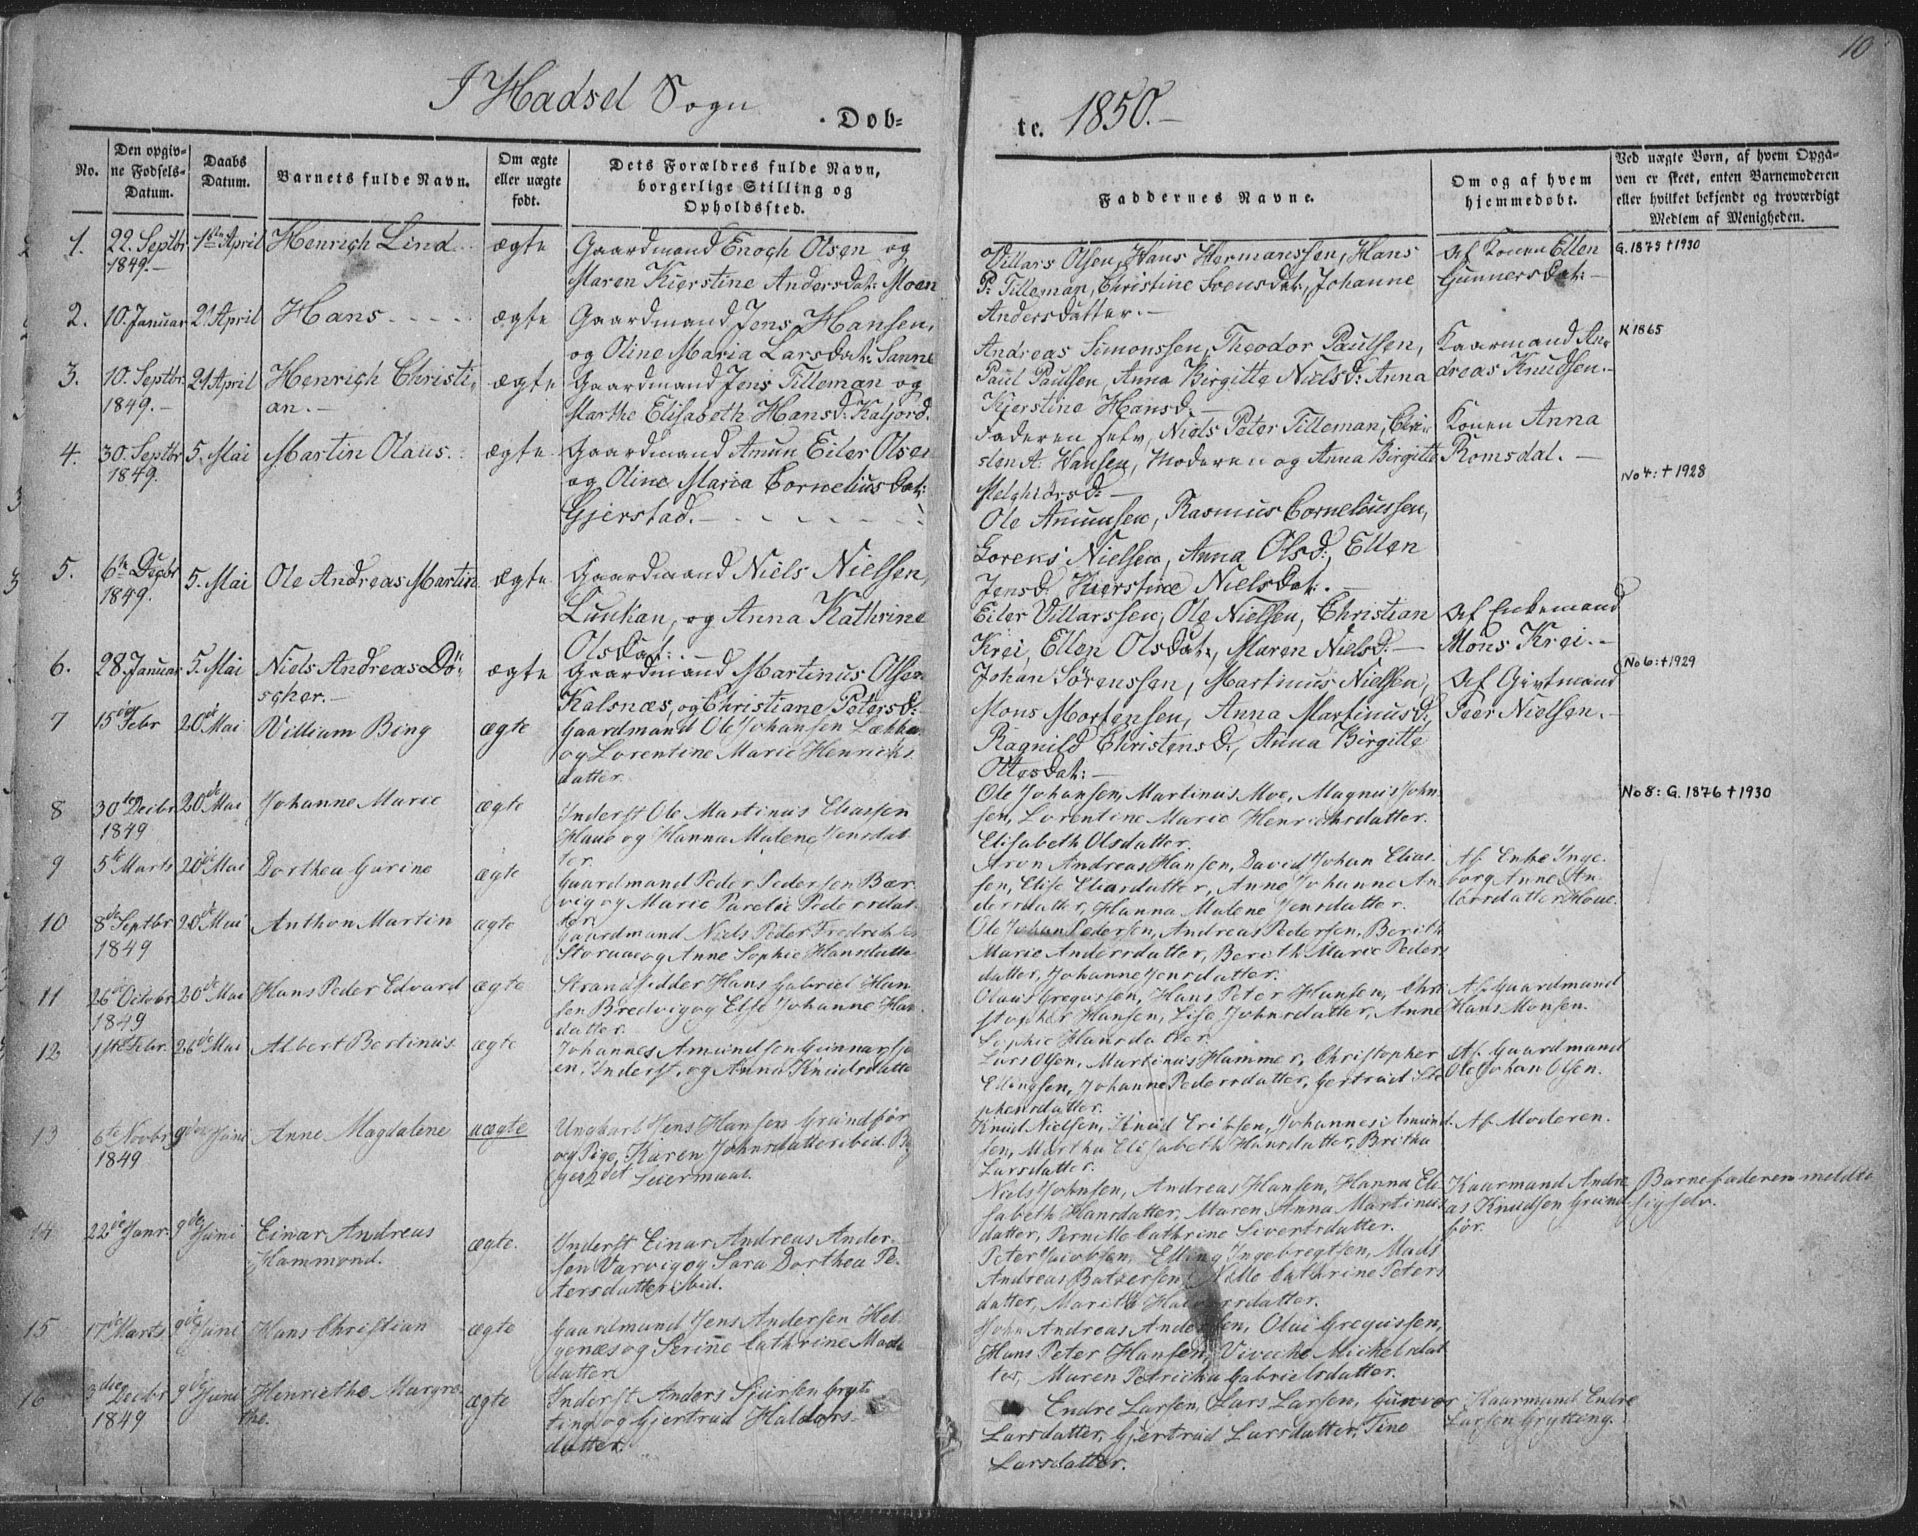 10
I Hadsel Sogn
Døb=
te. 1850.-
No.
Den opgiv-
ne Fødsels-
Datum.
Daabs
Datum.
Barnets fulde Navn.
Om ægte
eller uægte
født.
Dets Forældres fulde Navn,
borgerlige Stilling og
Opholdssted.
Faddernes Navne.
Om og af hvem
hjemmedøbt.
Ved uægte Børn, af hvem Opgi-
ven er skeet, enten Barnemoderen
eller hvilket bekjendt og troværdigt
Medlem af Menigheden.
1. 22. Septbr 1ste April Henrich Lind ægte Gaardmand Enoch Olsen og
1849.- Maren Kierstine Andersdat: Moen
Villars Olsen, Hans Hermanssen, Hans
P: Tilleman, Christine Svensdat:, Johanne
Andersdatter.-
Af Konen Ellen
Gunnersdat:-
G. 1875 † 1930
2. 10. Januar 21 April Hans ægte Gaardmand Jens Hansen,
og Oline Maria Larsdat: Sanne
Andreas Simonssen, Theodor Paulsen,
Paul Paulsen, Anna Birgitte Nielsd: Anna
Kjerstine Hansd.-
Kaarmand An-
dreas Knudsen.-
K 1865
3. 10. Septbr 21 April Henrigh Christi- ægte Gaardmand Jens Tilleman og
1849.- an.- Marthe Elisabeth Hansd: Kaljord.
Faderen selv, Niels Peter Tilleman, Chri-
sten A: Hansen, Moderen og Anna Birgitte
Melchiorsd:-
Konen Anna
Romsdal.-
4. 30. Septbr 5. Mai Martin Olaus. ægte Gaardmand Amun Eiler Olsen
1849. og Oline Maria Cornelius dat:
Gjerstad.-
Ole Amunsen, Rasmus Corneliussen,
Lorents Nielsen, Anna Olsd:, Ellen
Jensd: Kierstine Nielsdat:.-
No 4: † 1928
5. 6te Decbr 5. Mai Ole Andreas Martin ægte Gaardmand Niels Nielsen,
1849. Lunkan, og Anna Kathrine
Olsdat:.-
Eiler Villarssen, Ole Nielsen, Christian
Krei, Ellen Olsdat:, Maren Nielsd:-
Af Enkemand
Mons Krei.-
6. 28. Januar 5. Mai Niels Andreas Dö- ægte Gaardmand Martinus Olsen
scher.- Kalsnæs, og Christiane Petersd:
Johan Sörenssen, Martinus Nielsen,
Mons Mortensen, Anna Martinusd:,
Ragnild Christensd:, Anna Birgitte
Ottesdat:-
Af Givtmand
Peer Nielsen.-
No 6: † 1929
7 15de Febr 20de Mai William Bing ægte Gaardmand Ole Johansen
og Lorentine Marie Henriks
datter.
Ole Johansen, Martinus Moe, Magnus John-
sen, Lorentine Marie Henriksdatter.
Elisabeth Olsdatter.
8 30te Decbr 20de Mai Johanne Marie ægte Inderst Ole Martinus Eliassen
1849 Haue og Hanna Malene Jensdat
ter.
Aron Andreas Hansen, David Johan Elias-
sen, Elise Eliasdatter, Anne Johanne An-
dersdatter, Hanna Malene Jensdatter.
Af Enke Inge-
borg Anne An-
dersdatter Haue.
No 8: G. 1876 † 1930
9 5te Marts 20de Mai Dorthea Garine ægte Gaardmand Peder Pedersen Bær-
vig og Marie Parelie Pedersdat-
ter.
Ole Johan Pedersen, Andreas Pedersen, Berith
Marie Andersdatter, Berith Marie Peders
datter, Johanne Jensdatter.
10 8de Septbr 20de Mai Anthon Martin ægte Gaardmand Niels Peder Fredriksen
1849 og Anne Sophie Hansdatter
Olaus Gregussen, Hans Peter Hansen, Chri
stopher Hansen, Lise Johnsdatter, Anne
Sophie Hansdatter.
Af Gaardmand
Hans Monsen.
11 26de Octobr 20de Mai Hans Peder Edvard ægte Strandsidder Hans Gabriel Han
1849 sen Bredvig og Else Johanne Han
datter.
Lars Olsen, Martinus Hammer, Christopher
Ellingsen, Johanne Pedersdatter, Gertrud Ste
phensdatter.
Af Gaardmand
Ole Johan Olsen.
12 1ste Febr. 26de Mai Albert Bertinus ægte Johannes Amundsen Gunnarsjo
en, Inderst, og Anna Knudsdatter
Knud Nielsen, Knud Eriksen, Johannes Amund
sen, Martha Elisabeth Hansdatter, Britha
Larsdatter.
Af Moderen.
13 6te Novbr 9de Juni Anne Magdalene uægte Ungkarl Jens Hansen Grundfør
1849 og Pige, Karen Johnsdatter ibid. Be
gges 2det Leiermaal.
Niels Johnsen, Andreas Hansen, Hanna Eli
sabeth Hansdatter, Maren Anna Martinus
datter, Pernille Cathrine Sivertsdatter.
Kaarmand Andre
as Knudsen Grund
før.
Barnefaderen meldte
sig selv.
14 22de Janr. 9de Juni Einar Andreas ægte. Inderst Einar Andreas Ander-
Hammond. sen Varvig og Sara Dorthea Pe-
tersdatter ibid.
Peter Jacobsen, Elling Ingebregtsen, Mads
Andreas Batzersen, Nille Cathrine Peters
datter, Marith Halvorsdatter.
15 17de Marts 9de Juni Hans Christian ægte Gaardmand Jens Andersen Hel-
genæs og Serine Cathrine Mads
datter.
John Andreas Andersen, Olai Gregussen,
Hans Peter Hansen, Vivicke Mickelsdat
ter, Maren Petricka Gabrielsdatter.
16 3die Decbr 9de Juni Henriethe Margre- ægte Inderst Anders Siursen Gryt
1849 the. ting og Gjertrud Haldors-
datter.
Endre Larsen, Lars Larsen, Gunvor
Larsdatter, Gjertrud Larsdatter, Tine
Larsdatter.
Kaarmand Endre
Larsen Grytting.